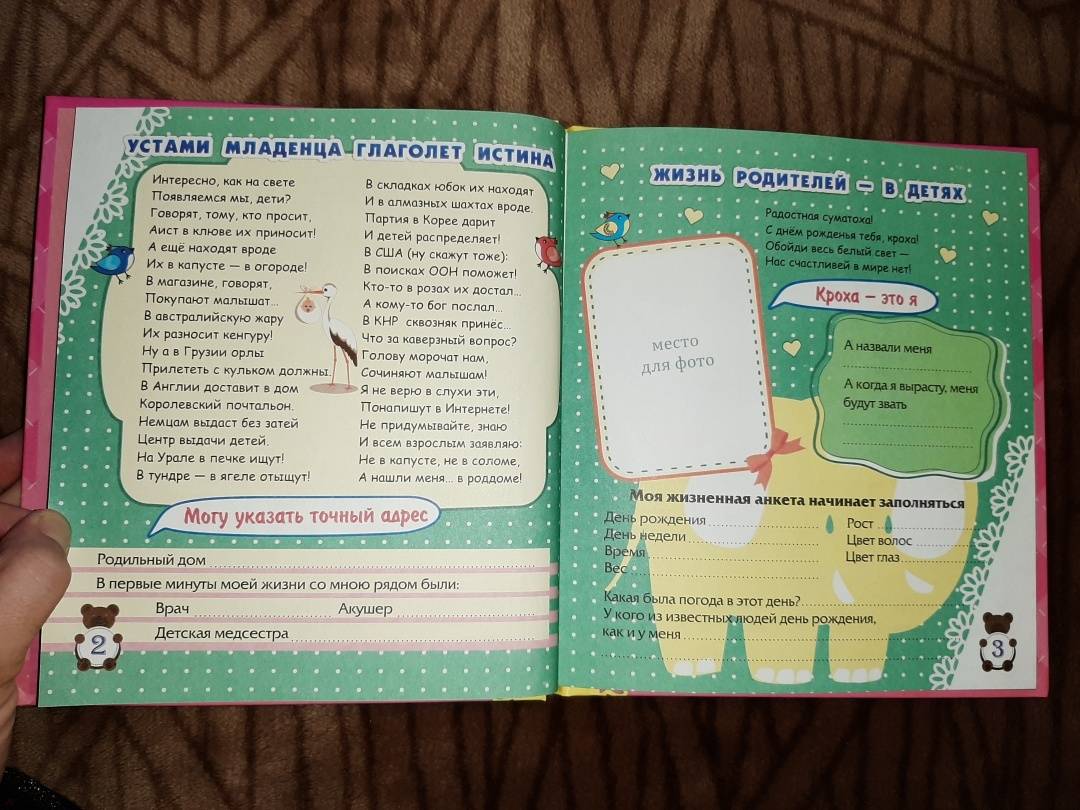 УСТАМИ МЛАДЕНЦА ГЛАГОЛЕТ ИСТИНА
Интересно, как на свете
Появляемся мы, дети?
Говорят, тому, кто просит,
Аист в клюве их приносит!
А ещё находят вроде
Их в капусте — в огороде!
В магазине, говорят,
Покупают малышат...
В австралийскую жару
Их разносит кенгуру!
Ну а в Грузии орлы
Прилететь с кульком должны.
В Англии доставит в дом
Королевский почтальон.
Немцам выдаст без затей
Центр выдачи детей.
На Урале в печке ищут!
В тундре — в ягеле отыщут!
В складках юбок их находят
И в алмазных шахтах вроде.
Партия в Корее дарит
И детей распределяет!
В США (ну скажут тоже):
В поисках ООН поможет!
Кто-то в розах их достал...
А кому-то бог послал...
В КНР сквозняк принёс...
Что за каверзный вопрос?
Голову морочат нам,
Сочиняют малышам!
Я не верю в слухи эти,
Понапишут в Интернете!
Не придумывайте, знаю
И всем взрослым заявляю:
Не в капусте, не в соломе,
А нашли меня... в роддоме!
Могу указать точный адрес
Родильный дом
В первые минуты моей жизни со мною рядом были:
Врач Акушер
Детская медсестра
2
ЖИЗНЬ РОДИТЕЛЕЙ — В ДЕТЯХ
Радостная суматоха!
С днём рожденья тебя, кроха!
Обойди весь белый свет —
Нас счастливей в мире нет!
Кроха – это я
место
для фото
А назвали меня
А когда я вырасту, меня
будут звать
Моя жизненная анкета начинает заполняться
День рождения
День недели
Время
Вес
Рост
Цвет волос
Цвет глаз
Какая была погода в этот день?
У кого из известных людей день рождения,
как и у меня
3